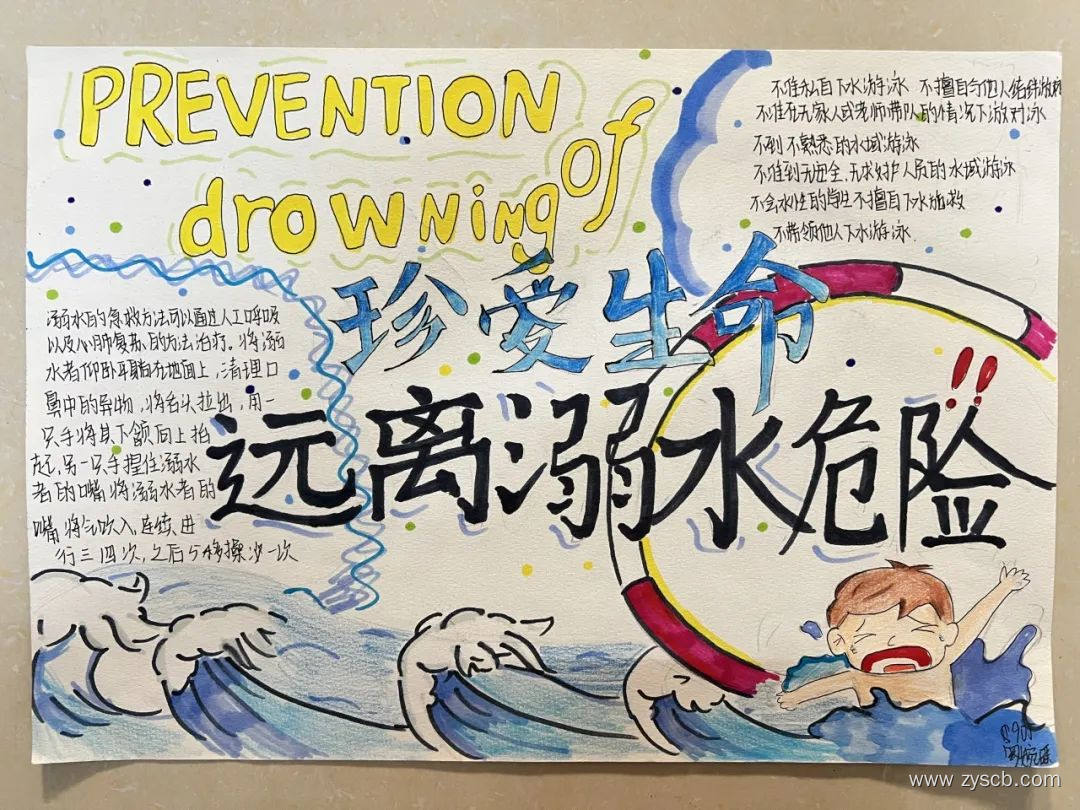 PREVENTION
of
drowning
不准私自下水游泳 不擅自与他人结伴游泳
不准在无家人或老师带队的情况下游对泳
不到不熟悉的水域游泳
不准到无安全、无求护人员的水域游泳
不会水性的学生不擅自下水施救
不带领他人下水游泳
珍爱生命
远离溺水危险!!
溺水的急救方法可以通过人工呼吸
以及心肺复苏的方法治疗。将溺
水者仰卧平躺在地面上，清理口
鼻中的异物，将舌头拉出，用一
只手将其下颌向上抬
起，另一只手捏住溺水
者的嘴 将溺水者的
嘴 将气吹入，连续进
行三四次，之后5
次一次
www.zyscb.com